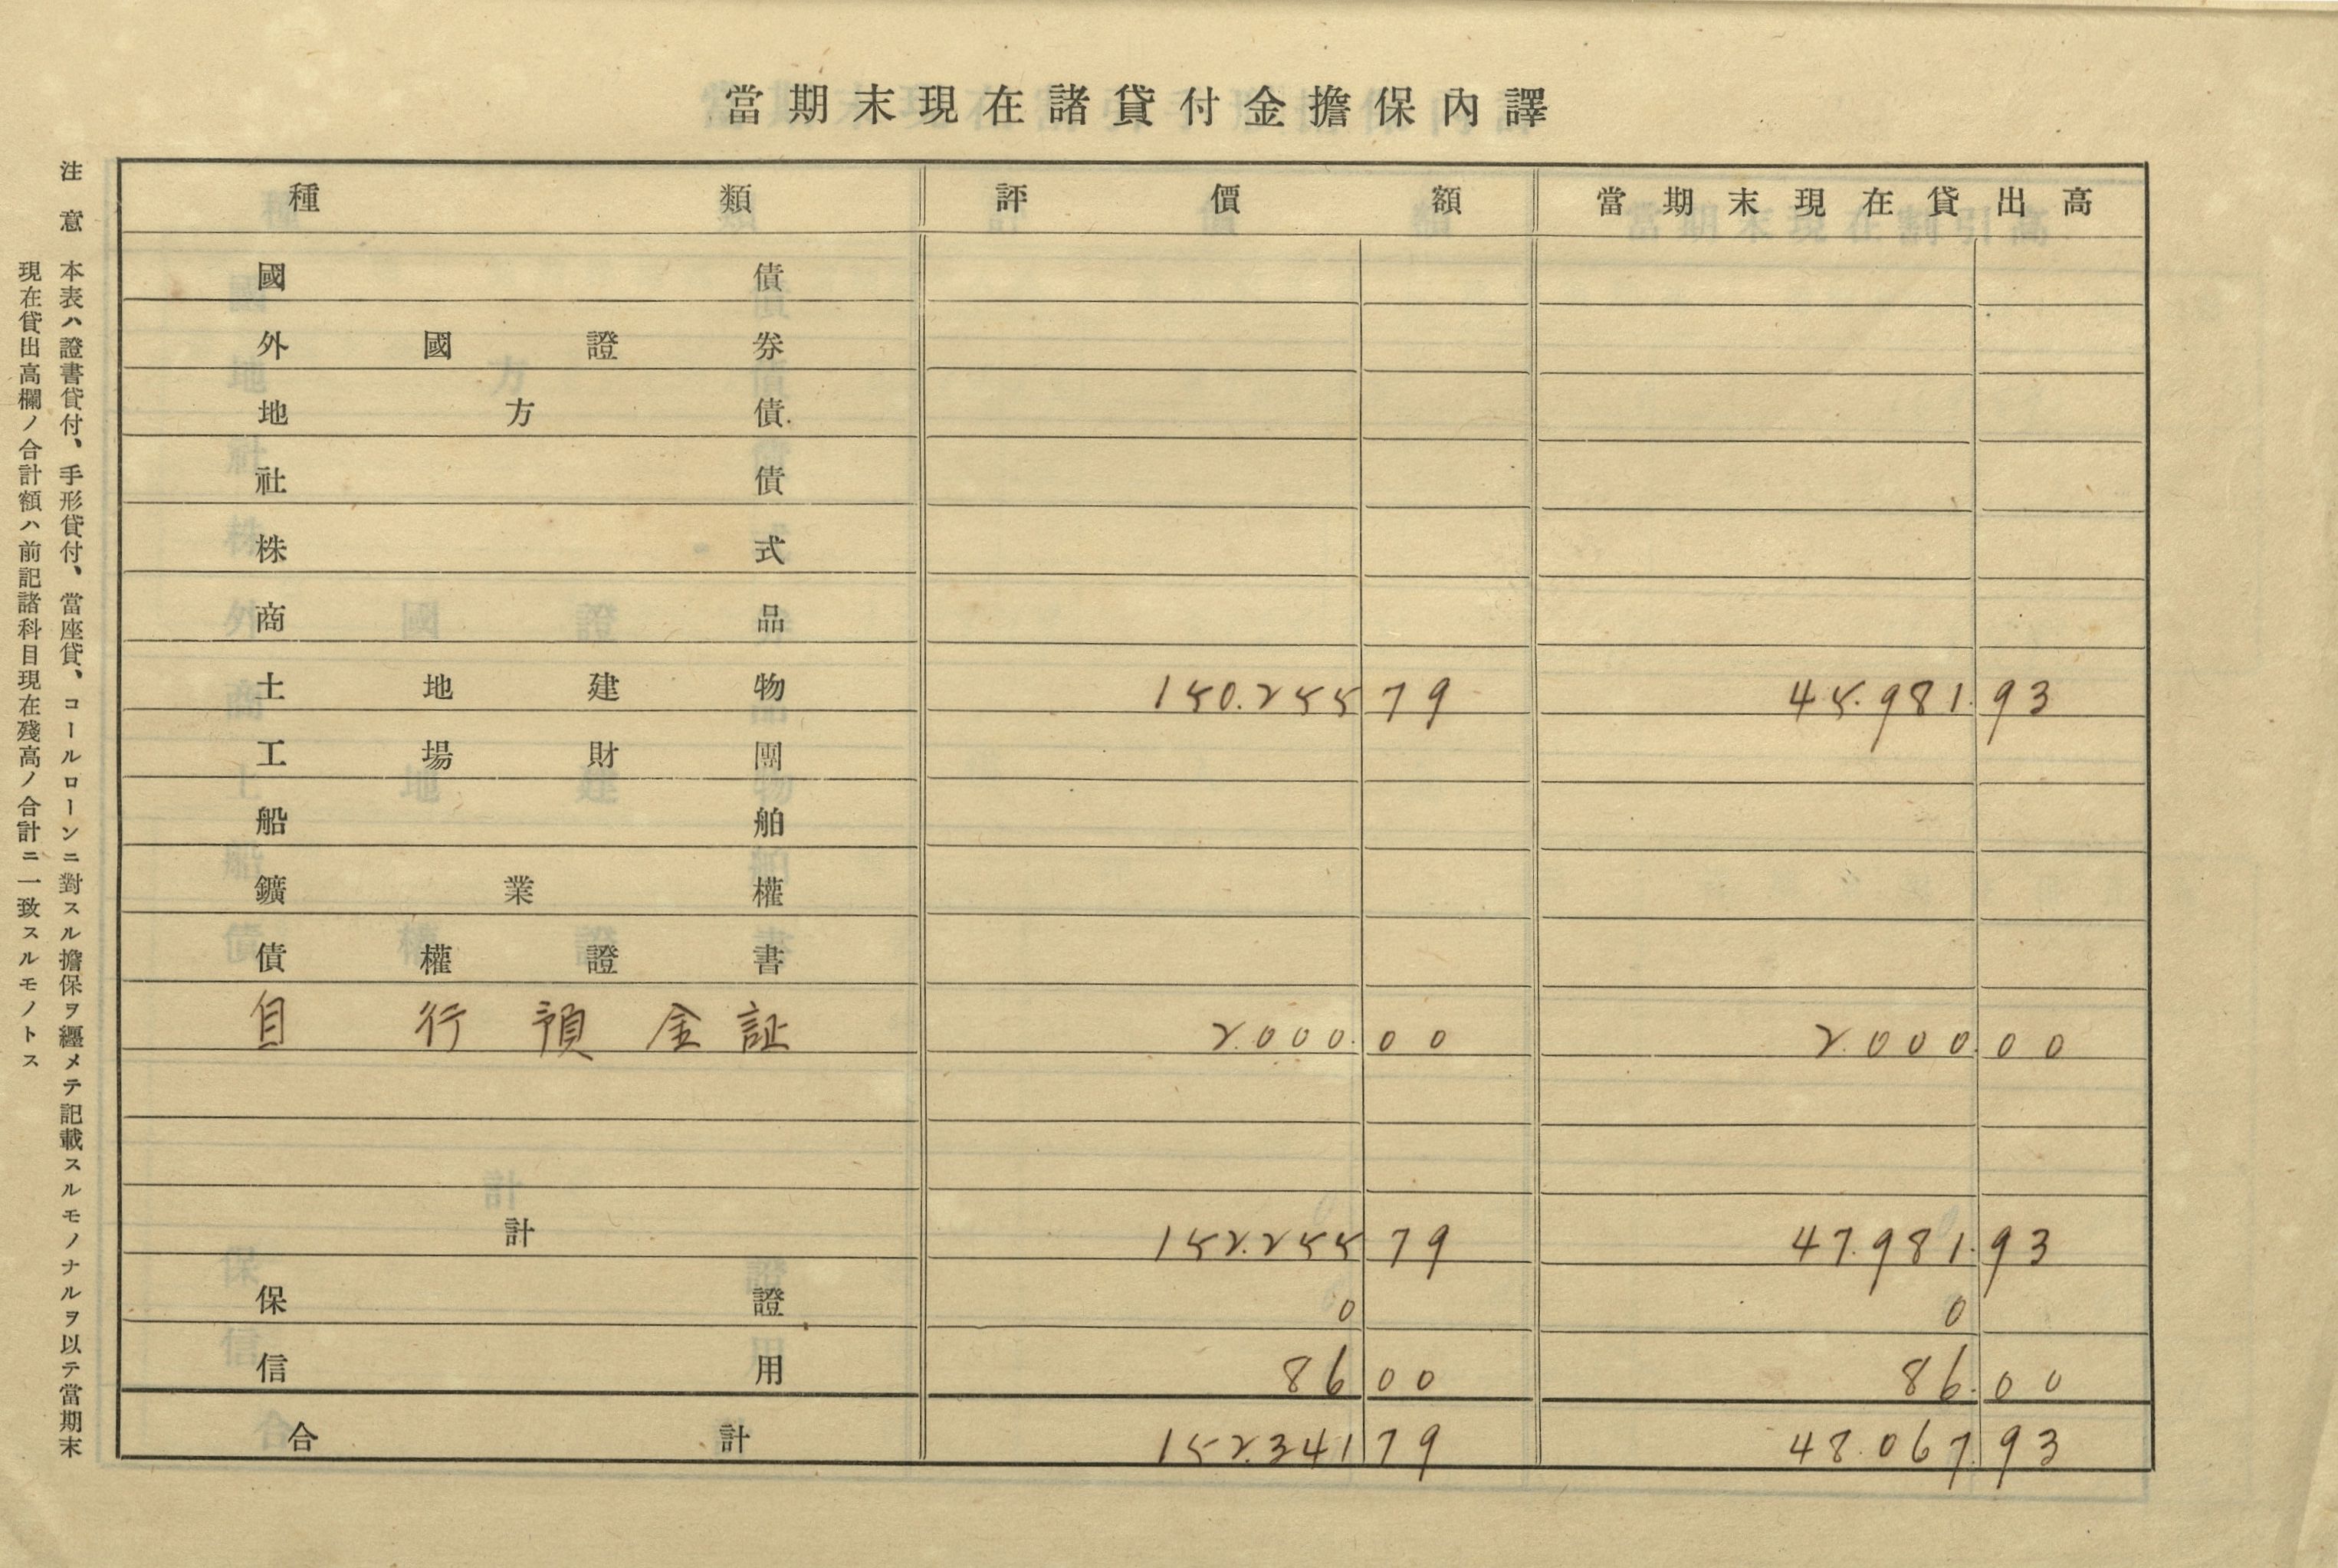 當期末現在諸貸付金擔保內譯
種類 評價額 當期末現在貸出高
國債
外國證券
地方債
社債
株式
商品
土地建物 150.255 79 45.981.93
工場財團
船舶
鑛業權
債權證書
自行預金証 2.000.00 2.000.00
計 152.255 79 47.981.93
保證 0 0
信用 86 00 86.00
合計 152.341 79 48.067.93
注意 本表ハ證書貸付、手形貸付、當座貸、コールローンニ對スル擔保ヲ纒メテ記載スルモノナルヲ以テ當期末
現在貸出高欄ノ合計額ハ前記諸科目現在殘高ノ合計ニ一致スルモノトス